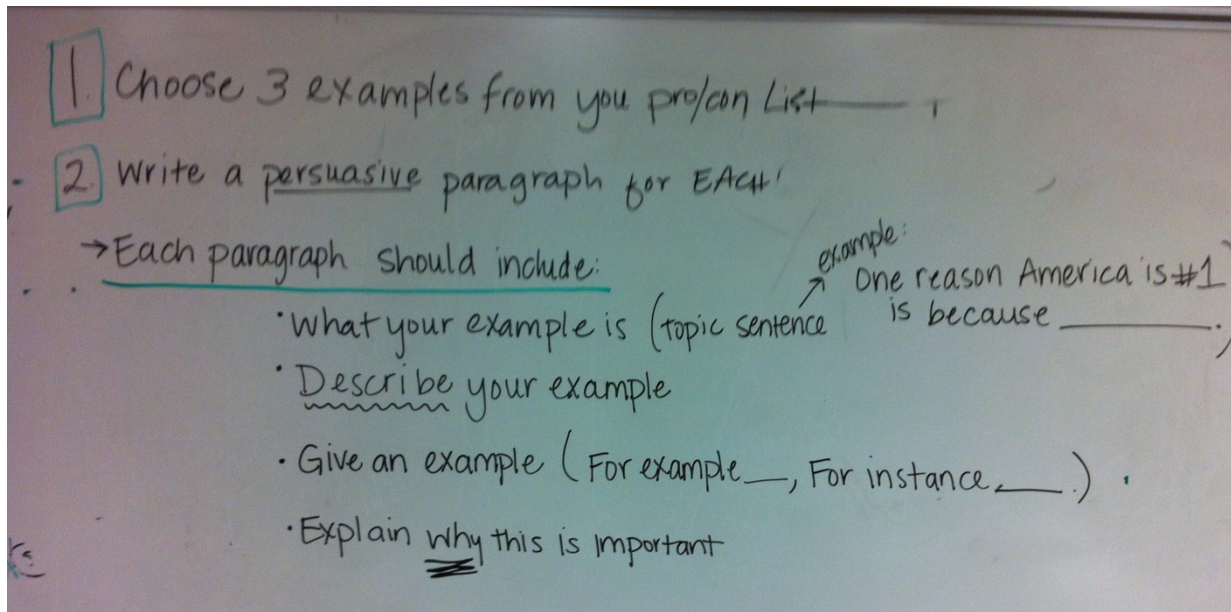 1. Choose 3 examples from you pro/con List
2. Write a persuasive paragraph for EACH
→ Each paragraph should include:
• What your example is (topic sentence
example:
One reason America is #1
is because ________.)
• Describe your example
• Give an example (For example__, For instance,___.)
• Explain why this is important